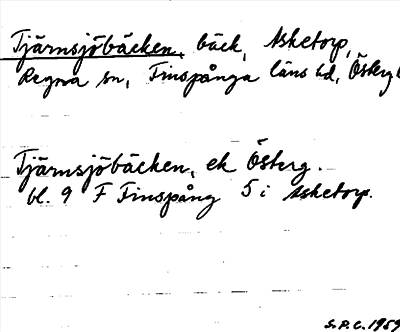 Tjärnsjöbäcken, bäck, Asketorp,
Regna sn, Finspånga läns hd, Österg
Tjärnsjöbäcken, ek Österg.
bl. 9 F Finspång 5 i Asketorp.
S.P.C. 1959